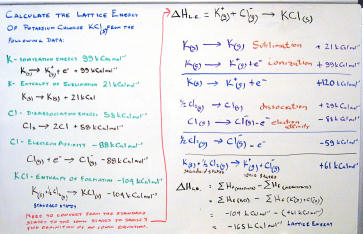 CALCULATE THE LATTICE ENERGY
OF POTASSIUM CHLORIDE KCl(s) FROM THE
FOLLOWING DATA:
K - IONISATION ENERGY 99 kCal mol⁻¹
K(g) → K⁺(g) + e⁻ + 99 kCal mol⁻¹
K - ENTHALPY OF SUBLIMATION 21 kCal
K(s) → K(g) + 21 kCal
Cl - DISSOCIATION ENERGY 58 kCal mol⁻¹
Cl₂ → 2Cl + 58 kCal mol⁻¹
Cl - ELECTRON AFFINITY -88 kCal mol⁻¹
Cl(g) + e⁻ → Cl⁻(g) - 88 kCal mol⁻¹
KCl - ENTHALPY OF FORMATION -104 kCal mol⁻¹
K(s) + ½Cl₂(g) → KCl(s) - 104 kCal mol⁻¹
STANDARD STATES
NEED TO CONVERT FROM THE STANDARD
STATES TO THE IONIC STATES TO SATISFY
THE DEFINITION OF AN IONIC EQUATION.
ΔH L.E. = K⁺(g) + Cl⁻(g) → KCl(s)
K(s) → K(g) Sublimation + 21 kCal mol⁻¹
K(g) → K⁺(g) + e⁻ ionization + 99 kCal mol⁻¹
K(s) → K⁺(g) + e⁻ +120 kCal mol⁻¹
½Cl₂(g) → Cl(g) dissociation + 29 kCal mol⁻¹
Cl(g) → Cl(g) - e⁻ electron affinity - 88 kCal mol⁻¹
½Cl₂(g) → Cl⁻(g) -59 kCal mol⁻¹
K(s) + ½Cl₂(g) → K⁺(g) + Cl⁻(g) +61 kCal mol⁻¹
STANDARD STATES IONIC STATES
ΔH L.E. = ΣH - ΣH
= ΣH - ΣH (K⁺(g) + Cl⁻(g))
= -104 kCal mol⁻¹ - (+61 kCal mol⁻¹)
= -165 kCal mol⁻¹ LATTICE ENERGY